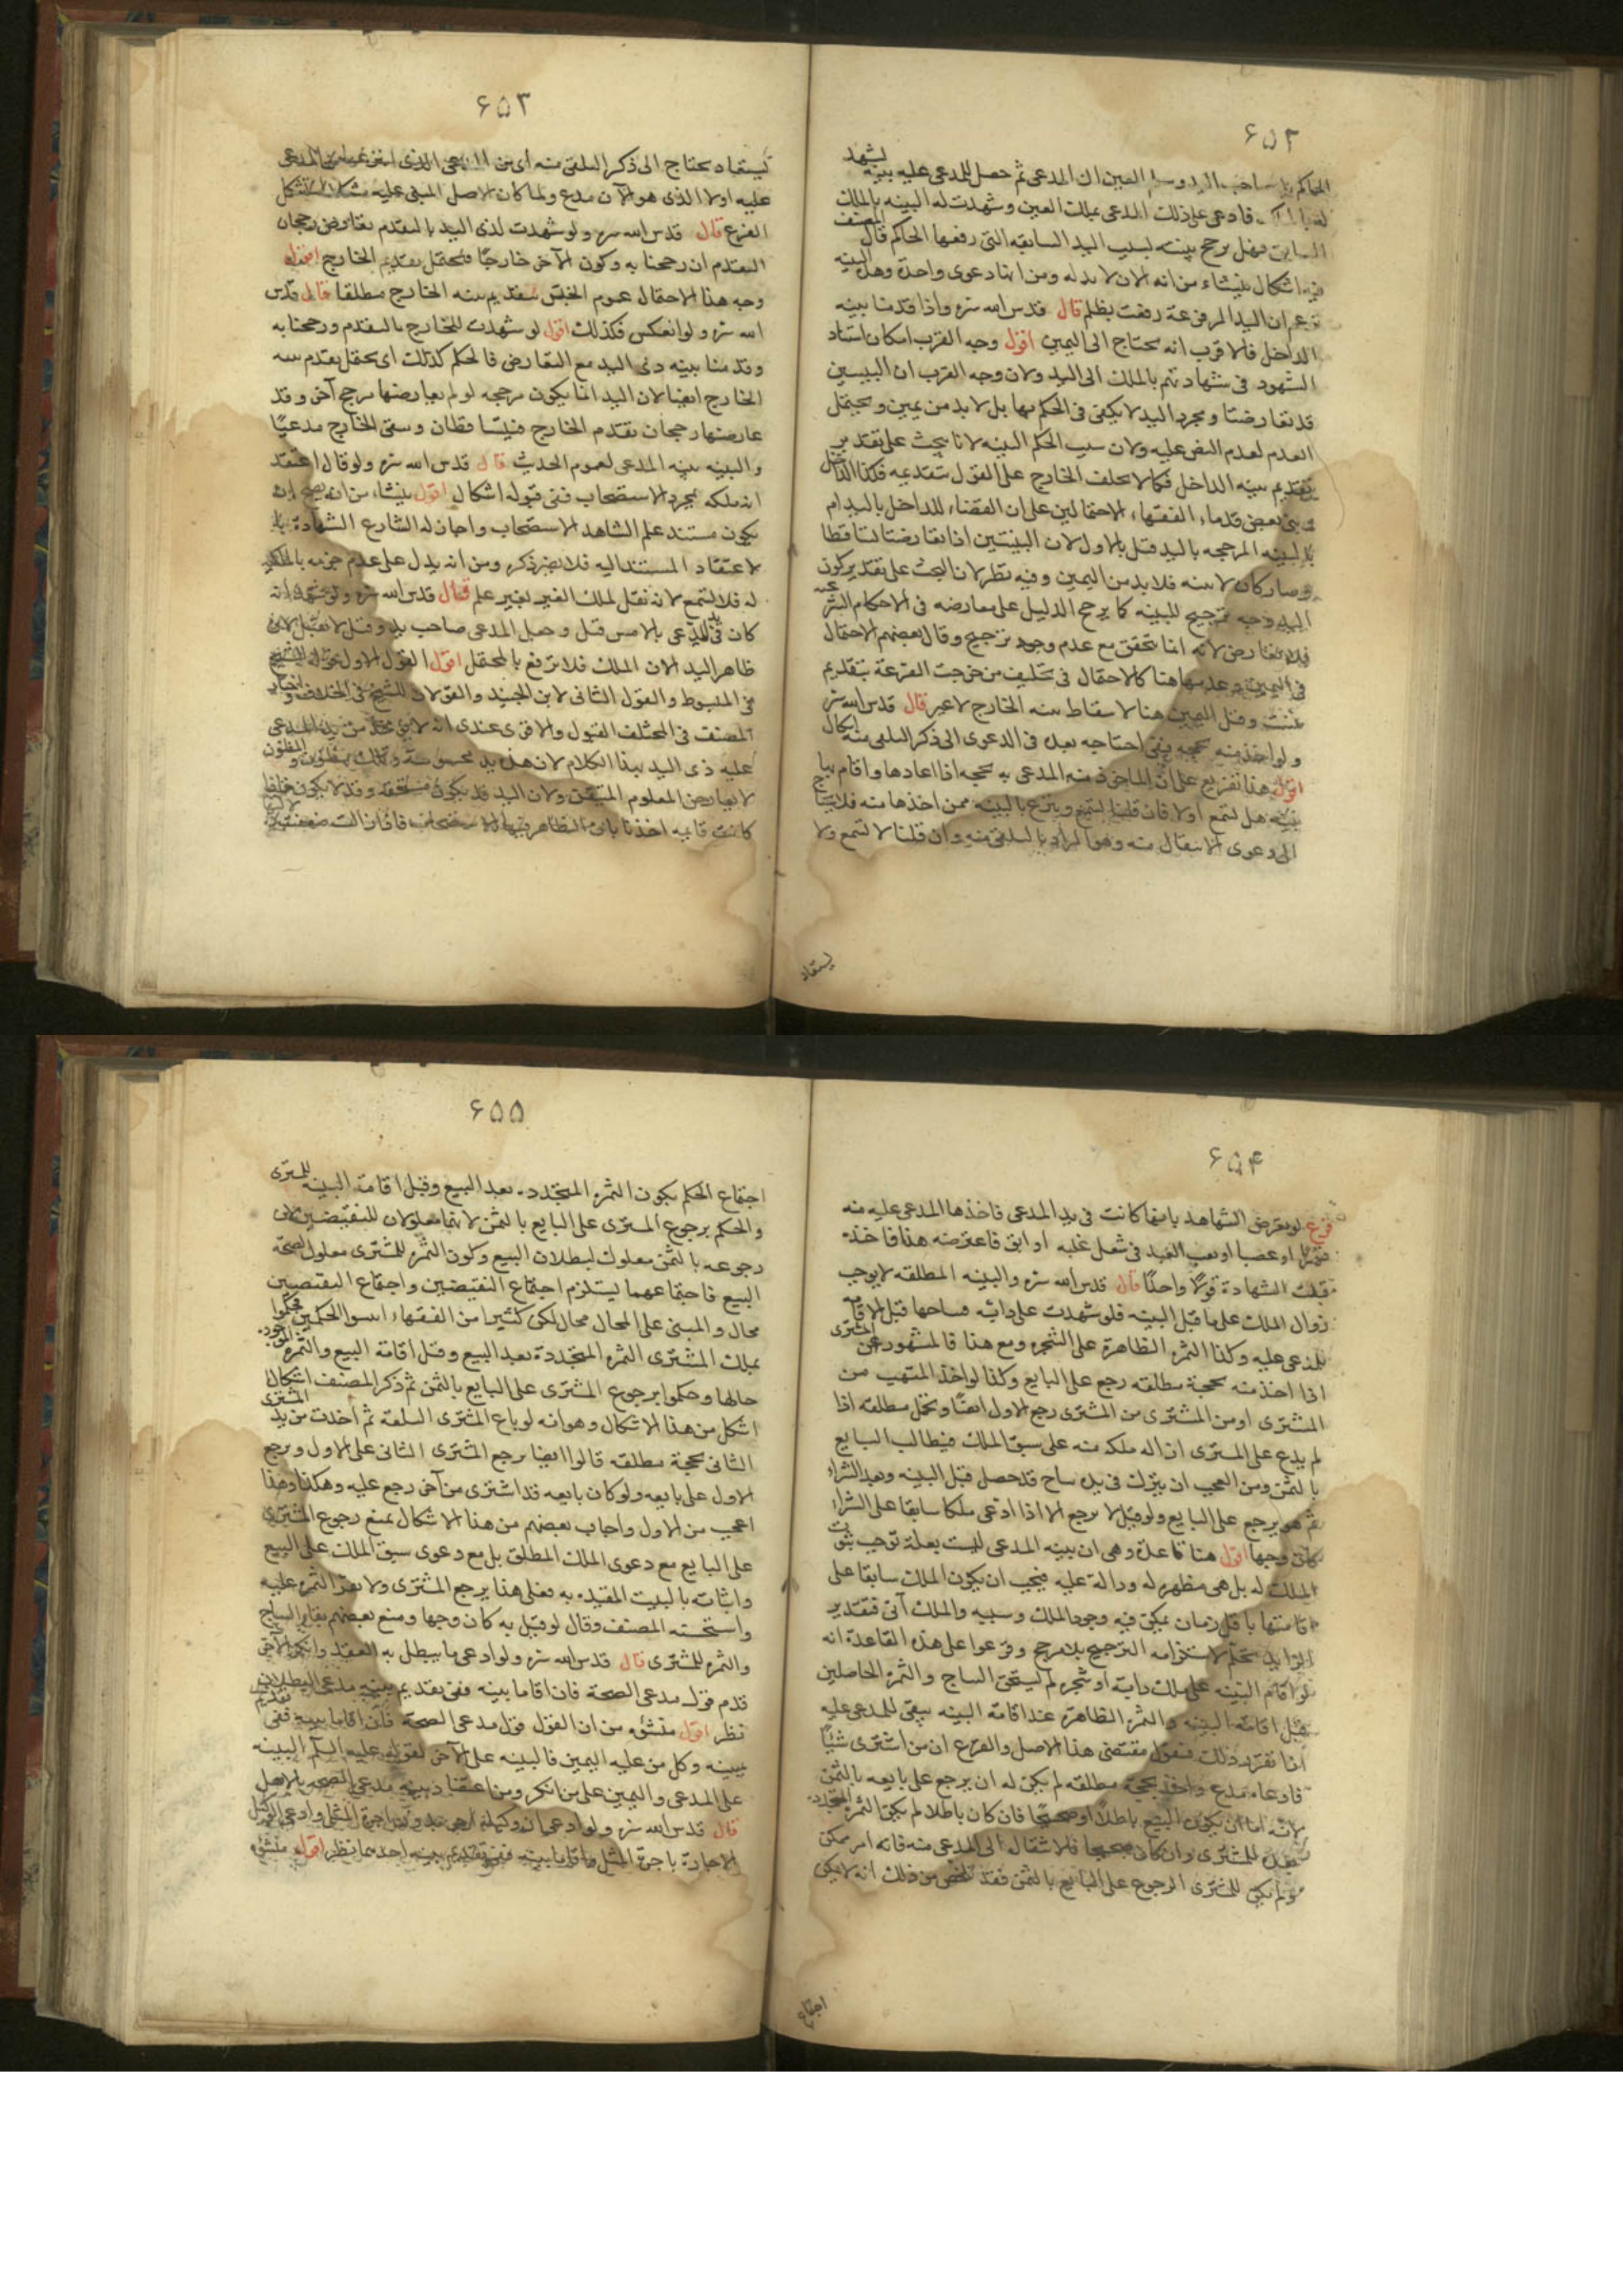 ۶۵۲
يشهد
الحاكم بان صاحب اليد وسلم العين الى المدعى ثم حصل للمدعى عليه بينه
فادعى على ذلك المدعى بملك العين وشهدت له البينه بالملك
السابق فهل يرجح بينته بسبب اليد السابقه التى رفعها الحاكم قال المصنف
فيه اشكال ينشاء من انه الان لا يد له ومن انها دعوى واحدة وهل البينه
تزعم ان اليد المرفوعة رفعت بظلم قال قدس الله سره واذا قدمنا بينه
الداخل فالاقرب انه يحتاج الى اليمين اقول وجه القرب امكان استناد
الشهود فى شهادتهم بالملك الى اليد ولان وجه القرب ان البينتين
قد تعارضتا ومجرد اليد لا يكفى فى الحكم بها بل لا بد من يمين ويحتمل
العدم لعدم النص عليه ولان سبب الحكم البينه لانا نبحث على تقدير
تقديم بينه الداخل فكما لا يحلف الخارج على القول بتقديمه فكذا الداخل
وبنى بعض قدماء الفقهاء الاحتمالين على ان القضاء للداخل باليد ام
بالبينه المرجحه باليد قيل بالاول لان البينتين اذا تعارضتا تساقطا
وصار كان لا بينه فلا بد من اليمين وفيه نظر لان البحث على تقدير كون
اليد وجه ترجيح للبينه كما يرجح الدليل على معارضه فى الاحكام الشرعيه
فلا تعارض لانه انما يتحقق مع عدم وجود ترجيح وقال بعضهم الاحتمال
فى اليمين وعدمها هنا كالاحتمال فى تحليف من خرجت القرعة بتقديم
بينته وقيل اليمين هنا لاسقاط بينه الخارج لا غير قال قدس الله سره
ولو اخذ منه بحجه ففى احتياجه بعده فى الدعوى الى ذكر التلقى منه اشكال
اقول هذا تفريع على ان الماخوذ منه المدعى به بحجه اذا اعادها واقام بها
بينه هل تسمع او لا فان قلنا تسمع وينزع بالبينه ممن اخذها منه فلا يحتاج
الى دعوى الانتقال منه وهو المراد بالتلقى منه وان قلنا لا تسمع ولا
يستفاد
۶۵۳
يستفاد يحتاج الى ذكر التلقى منه اى من المدعى الذى
عليه اولا الذى هو الآن مدع ولما كان الاصل المبنى عليه مشكلا استشكل
الفرع قال قدس الله سره ولو شهدت لذى اليد بالتقدم تعارض رجحان
التقدم ان رجحنا به وكون الآخر خارجا فيحتمل تقديم الخارج اقول
وجه هذا الاحتمال عموم الخبر بتقديم بينه الخارج مطلقا قال قدس
الله سره ولو انعكس فكذلك اقول لو شهدت للخارج بالتقدم ورجحنا به
وقدمنا بينه ذى اليد مع التعارض فالحكم كذلك اى يحتمل تقدم بينه
الخارج ايضا لان اليد انما يكون مرجحه لو لم يعارضها مرجح آخر وقد
عارضها رجحان تقدم الخارج فيتساقطان وبقى الخارج مدعيا
والبينه بينه المدعى لعموم الحديث قال قدس الله سره ولو قال اعتقد
انه ملكه بمجرد الاستصحاب ففى قبوله اشكال اقول ينشاء من انه يصح ان
يكون مستند علم الشاهد الاستصحاب واجاز له الشارع الشهادة
لاعتقاد المستند اليه فلا يضر ذكره ومن انه يدل على عدم جزمه بالملك
له فلا تسمع لانه نقل لملك الغير لغير علم قال قدس الله سره ولو شهد انه
كان فى يد المدعى بالامس قبل وجعل المدعى صاحب يد وقيل لا تقبل لان
ظاهر اليد الان الملك فلا ترفع بالمحتمل اقول القول الاول قول الشيخ
فى المبسوط والقول الثانى لابن الجنيد والقولان للشيخ فى الخلاف واختيار
المصنف فى المختلف القبول والاقوى عندى انه لا يزول يد المدعى
عليه ذى اليد بهذا الكلام لان هذه يد محسوسة وتلك مظنون والمظنون
لا يعارض المعلوم المتيقن ولان اليد قد يكون مستحقه وقد لا يكون فاذا
كانت قايمه اخذنا بان الظاهر فيها الاستحقاق فاذا زالت ضعفت
۶۵۴
فرع لو تعرض الشاهد بانها كانت فى يد المدعى فاخذها المدعى عليه منه
قهرا او غصبا او بعث العبد فى شغل غلبه او ابق فاعترضه هذا فاخذه
قبلت الشهادة قولا واحدا قال قدس الله سره والبينه المطلقه لا يوجب
زوال الملك على ما قبل البينه فلو شهدت على دابه فنتاجها قبل الاقامه
للمدعى عليه وكذا الثمرة الظاهرة على الشجره ومع هذا فالمشهور ان المشترى
اذا اخذ منه بحجة مطلقه رجع على البايع وكذا لو اخذ المتهب من
المشترى او من المشترى من المشترى رجع الاول ايضا ويحتمل مطلقه اذا
لم يدع على المشترى ازاله ملكه منه على سبق الملك فيطالب البايع
بالثمن ومن العجب ان يترك فى يده نتاج قد حصل قبل البينه وبعد الشراء
ثم هو يرجع على البايع ولو قيل لا يرجع الا اذا ادعى ملكا سابقا على الشراء
كان وجها اقول هنا قاعدة وهى ان بينه المدعى ليست بعلة توجب ثبوت
الملك له بل هى مظهره له ودالة عليه فيجب ان يكون الملك سابقا على
اقامتها باقل زمان يمكن فيه وجود الملك وسببه والملك آنى فتقدير
الزايد تحكم لاستلزامه الترجيح بلا مرجح وفرعوا على هذه القاعدة انه
لو اقام البينه على ملك دابة او شجره لم يستحق النتاج والثمرة الحاصلين
قبل اقامة البينه والثمرة الظاهرة عند اقامة البينه يبقى للمدعى عليه
اذا تقرر ذلك فنقول مقتضى هذا الاصل والفرع ان من اشترى شيئا
فادعاه مدع واخذه بحجة مطلقه لم يكن له ان يرجع على بايعه بالثمن
لانه اما ان يكون البيع باطلا او صحيحا فان كان باطلا لم يكن الثمرة المتجدده
بعده للمشترى وان كان صحيحا فالانتقال الى المدعى منه فانه امر ممكن
ولم يكن للمشترى الرجوع على البايع بالثمن فقد تلخص من ذلك انه لا يمكن
اجتماع
۶۵۵
اجتماع الحكم بكون الثمره المتجدده بعد البيع وقبل اقامة البينه للمشترى
والحكم برجوع المشترى على البايع بالثمن لانهما معلولان للنقيضين لان
رجوعه بالثمن معلول لبطلان البيع وكون الثمره للمشترى معلول لصحة
البيع فاجتماعهما يستلزم اجتماع النقيضين واجتماع النقيضين
محال والمبنى على المحال محال لكن كثيرا من الفقهاء اسسوا الحكمين فحكموا
بملك المشترى الثمره المتجددة بعد البيع وقبل اقامة البيع والثمره الموجوده
حالها وحكموا برجوع المشترى على البايع بالثمن ثم ذكر المصنف اشكال
اشكل من هذا الاشكال وهو انه لو باع المشترى السلعة ثم اخذت من يد المشترى
الثانى بحجة مطلقه قالوا ايضا يرجع المشترى الثانى على الاول ويرجع
الاول على بايعه ولو كان بايعه قد اشترى من آخر رجع عليه وهكذا وهذا
اعجب من الاول واجاب بعضهم من هذا الاشكال بمنع رجوع المشترى
على البايع مع دعوى الملك المطلق بل مع دعوى سبق الملك على البيع
واثباته بالبينه المقيده به فعلى هذا يرجع المشترى ولا يقر الثمره عليه
واستحسنه المصنف وقال لو قيل به كان وجها ومنع بعضهم بقاء النتاج
والثمره للمشترى قال قدس الله سره ولو ادعى ما يبطل به العقد وانكر الآخر
قدم قول مدعى الصحة فان اقاما بينه ففى تقديم بينه مدعى البطلان
نظر اقول منشؤه من ان القول قول مدعى الصحة فان اقاما بينه ففى تقديم
بينه وكل من عليه اليمين فالبينه على الآخر لقوله عليه السلم البينه
على المدعى واليمين على من انكر ومن اعتضاد بينه مدعى الصحه بالاصل
قال قدس الله سره ولو ادعى
الاجارة باجرة المثل واقاما بينه ففى تقديم بينه احدهما نظر اقول منشؤه